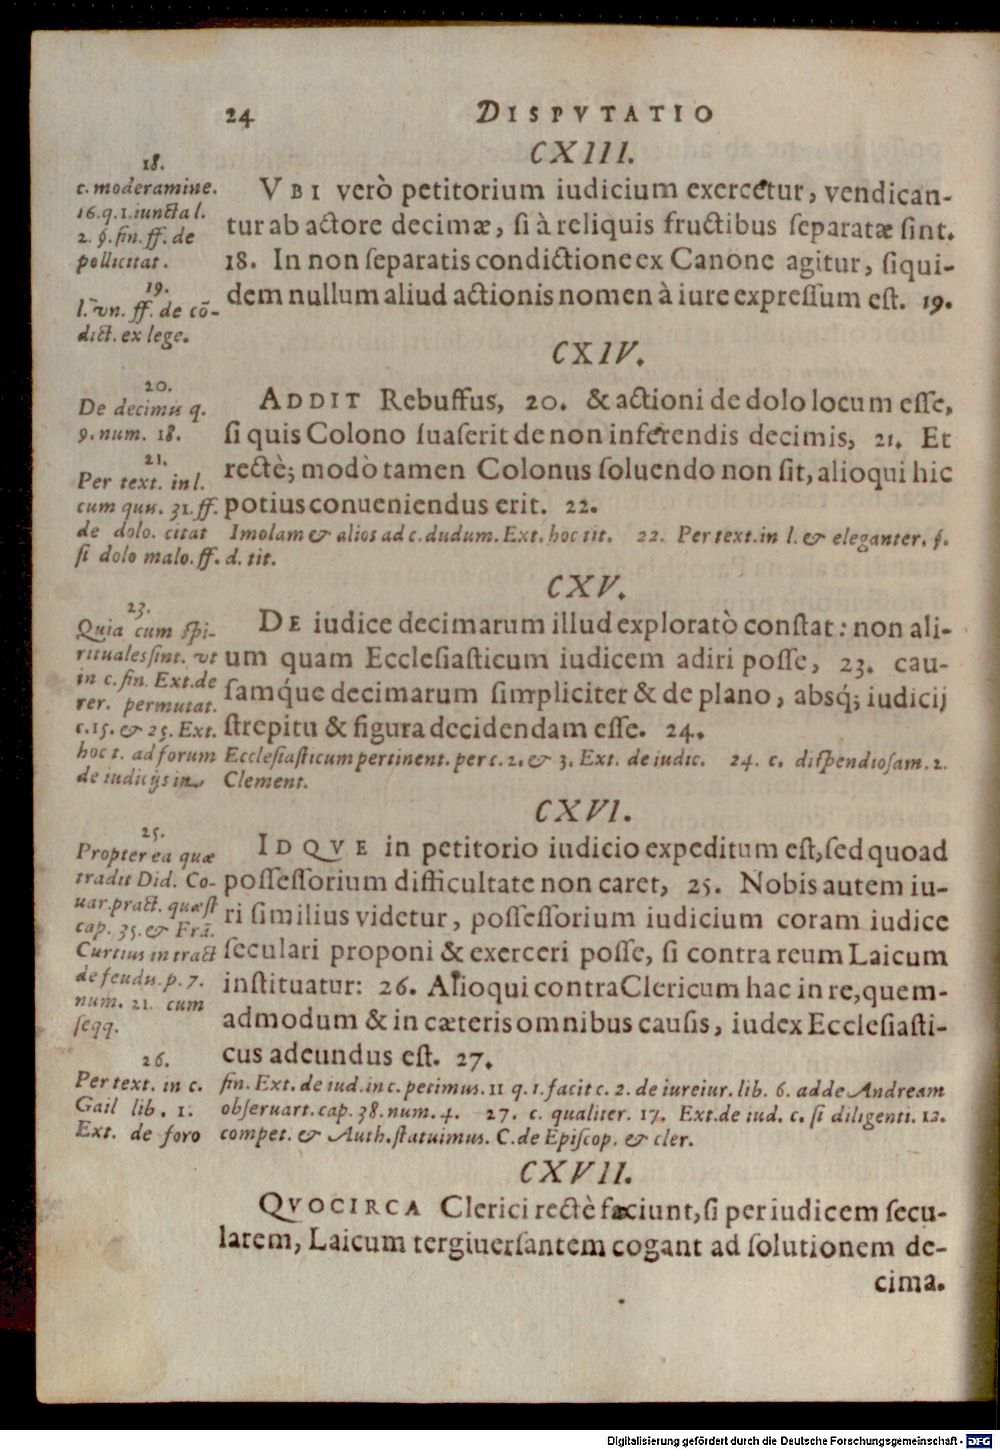 24 DISPVTATIO
CXIII.
VBI verò petitorium iudicium exercetur, vendican-
tur ab actore decimæ, si à reliquis fructibus separatæ sint.
18. In non separatis condictione ex Canone agitur, siqui-
dem nullum aliud actionis nomen à iure expressum est. 19.
18.
c. moderamine.
16. q. 1. iuncta l.
2. §. fin. ff. de
pollicitat.
19.
l. vn. ff. de cō-
dict. ex lege.
CXIV.
ADDIT Rebuffus, 20. & actioni de dolo locum esse,
si quis Colono suaserit de non inferendis decimis, 21. Et
rectè; modò tamen Colonus soluendo non sit, alioqui hic
potius conueniendus erit. 22.
20.
De decimis q.
9. num. 18.
21.
Per text. in l.
cum quis. 31. ff.
de dolo. citat Imolam & alios ad c. dudum. Ext. hoc tit. 22. Per text. in l. & eleganter. §.
si dolo malo. ff. d. tit.
CXV.
DE iudice decimarum illud exploratò constat: non ali-
um quam Ecclesiasticum iudicem adiri posse, 23. cau-
samq́ue decimarum simpliciter & de plano, absq́; iudicij
strepitu & figura decidendam esse. 24.
23.
Quia cum spi-
rituales sint. vt
in c. fin. Ext. de
rer. permutat.
c. 15. & 25. Ext.
hoc t. ad forum Ecclesiasticum pertinent. per c. 2. & 3. Ext. de iudic. 24. c. dispendiosam. 2.
de iudicijs in Clement.
CXVI.
IDQVE in petitorio iudicio expeditum est, sed quoad
possessorium difficultate non caret, 25. Nobis autem iu-
ri similius videtur, possessorium iudicium coram iudice
seculari proponi & exerceri posse, si contra reum Laicum
instituatur: 26. Alioqui contra Clericum hac in re, quem-
admodum & in cæteris omnibus causis, iudex Ecclesiasti-
cus adeundus est. 27.
25.
Propterea quæ
tradit Did. Co-
uar. pract. quæst
cap. 35. & Frā.
Curtius in tract
de feudis. p. 7.
num. 21. cum
seqq.
26.
Per text. in c. fin. Ext. de iud. in c. petimus. 11 q. 1. facit c. 2. de iureiur. lib. 6. adde Andream
Gail lib. 1. obseruart. cap. 38. num. 4. 27. c. qualiter. 17. Ext. de iud. c. si diligenti. 12.
Ext. de foro compet. & Auth. statuimus. C. de Episcop. & cler.
CXVII.
QVOCIRCA Clerici rectè faciunt, si per iudicem secu-
larem, Laicum tergiuersantem cogant ad solutionem de-
cima.
Digitalisierung gefördert durch die Deutsche Forschungsgemeinschaft - DFG